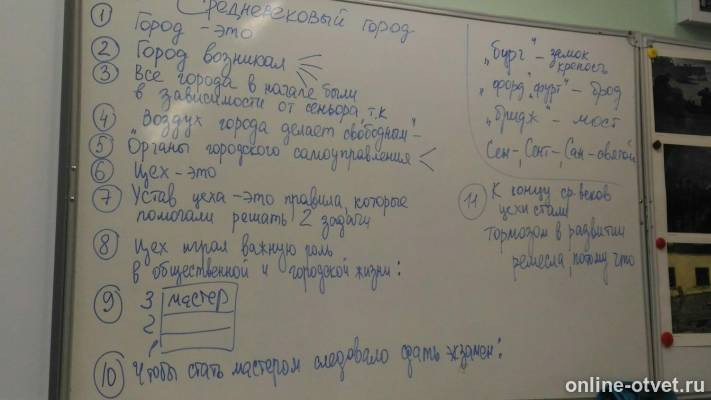 Средневековый город
① Город - это
② Город возникал
③ Все города в начале были
в зависимости от сеньора, т.к
④ "Воздух города делает свободным" -
⑤ Органы городского самоуправления
⑥ Цех - это
⑦ Устав цеха - это правила, которые
помогали решать 2 задачи
⑧ Цех играл важную роль
в общественной и городской жизни:
⑨ 3 мастер
2
1
⑩ Чтобы стать мастером следовало сдать экзамен:
„бург" - замок
крепость
„форд", „фурт" - брод
„бридж" - мост
Сен-, Сент-, Сан - святой
⑪ К концу ср. веков
цехи стали
тормозом в развитии
ремесла, потому что
online-otvet.ru